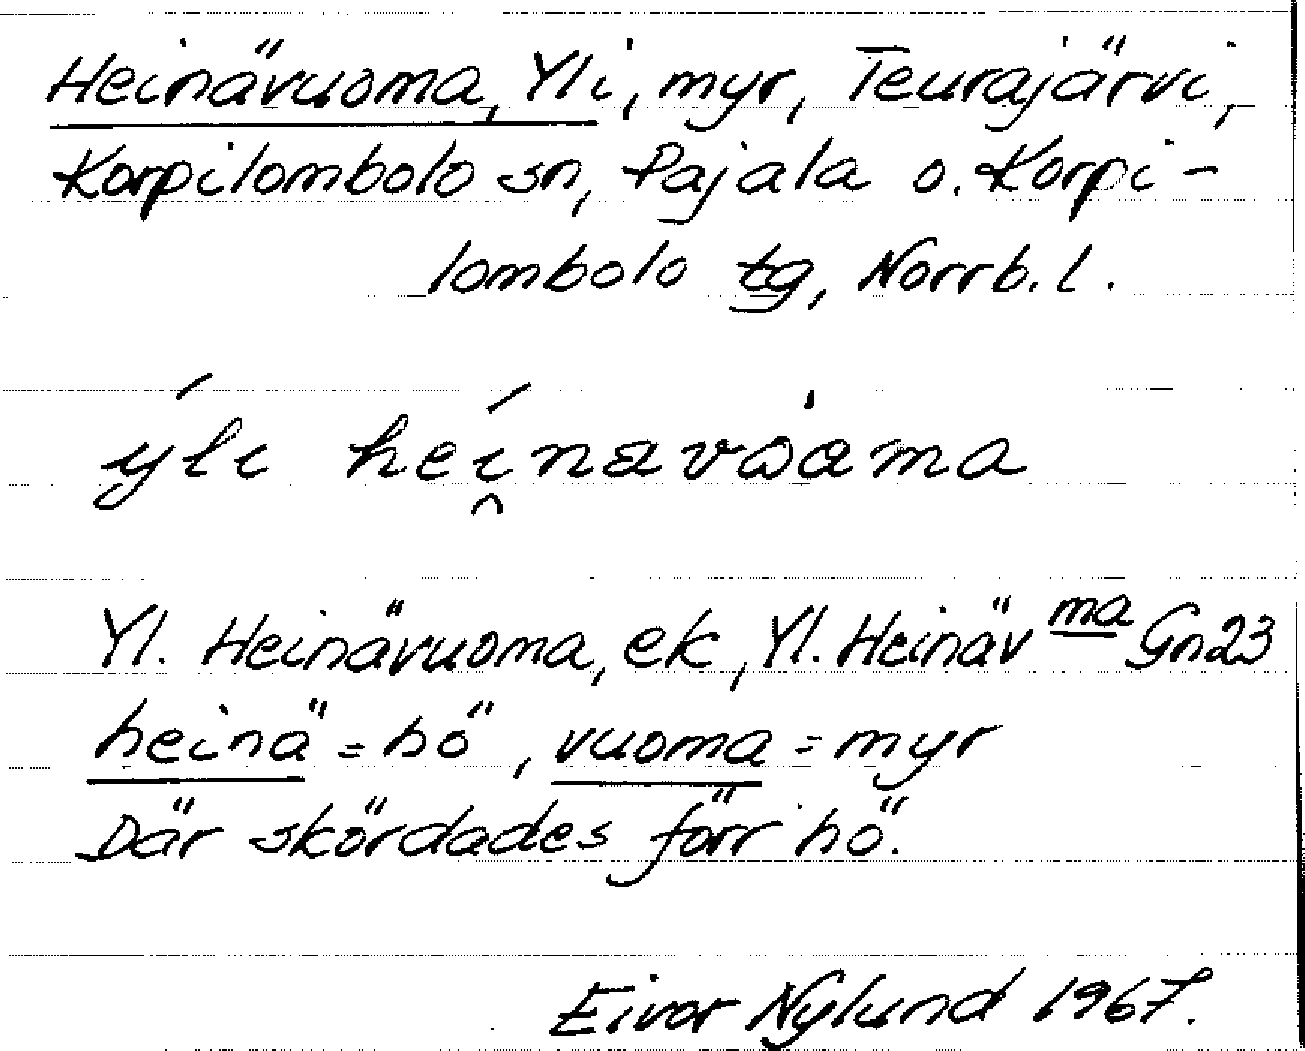 Heinävuoma, Yli, myr, Teurajärvi,
Korpilombolo sn, Pajala o. Korpi-
lombolo tg, Norrb. l.
ýli heí̯navωama
Yl. Heinävuoma, ek, Yl. Heinäv ma Gn23
heinä = hö, vuoma = myr
Där skördades förr hö.
Eivor Nylund 1967.